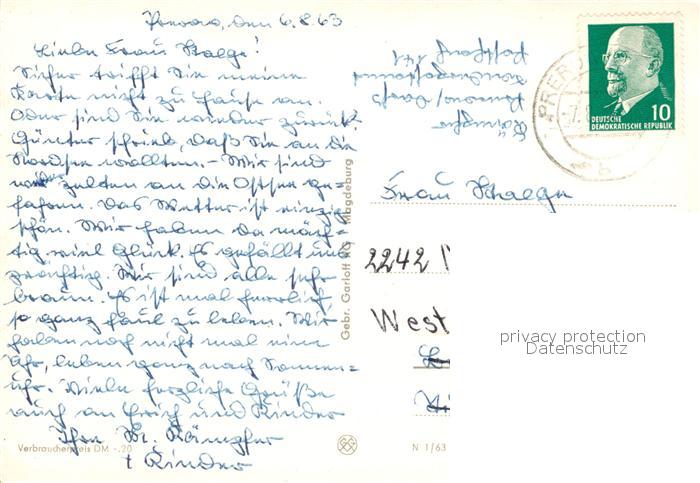 Prerow, den 6.8.63
Liebe Frau Stalge!
Sicher trifft Sie meine
Karte nicht zu Hause an.
Oder sind Sie wieder zurück?
Günter schrieb, daß Sie an die
Nordsee wollten. - Wir sind
wieder zelten an die Ostsee ge-
fahren. Das Wetter ist einzig
schön. Wir haben da mäch-
tig viel Glück. Es gefällt uns
prächtig. Wir sind alle sehr
braun. Es ist mal herrlich
so ganz faul zu leben. Wir
haben noch nicht mal eine
Uhr, leben ganz nach Sonnen=
uhr. Viele herzliche Grüße
auch an Erich und Kinder
Ihre M. Kämpfer
+ Kinder
Verbraucherpreis DM -.20
Gebr. Garloff KG Magdeburg
N 1/63
Kämpfer
Prerow/Darß
Postfach 121
Frau Stalge
2242
West
PREROW
-7.
b
10
DEUTSCHE
DEMOKRATISCHE REPUBLIK
privacy protection
Datenschutz